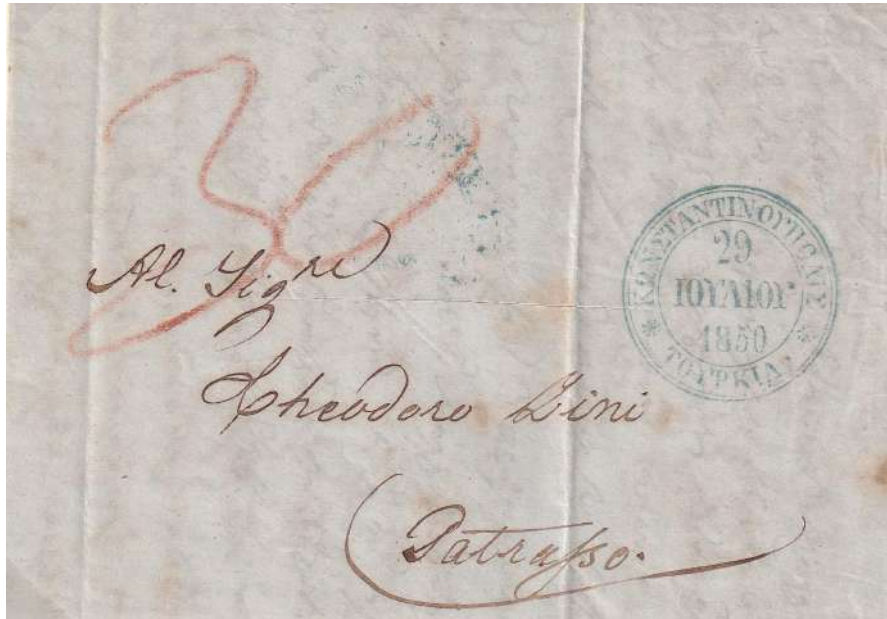 30
Al. Sig.re
Theodoro Zini
Patrasso.
ΚΩΝΣΤΑΝΤΙΝΟΥΠΟΛΙΣ
29
ΙΟΥΛΙΟΥ
1850
* ΤΟΥΡΚΙΑ *